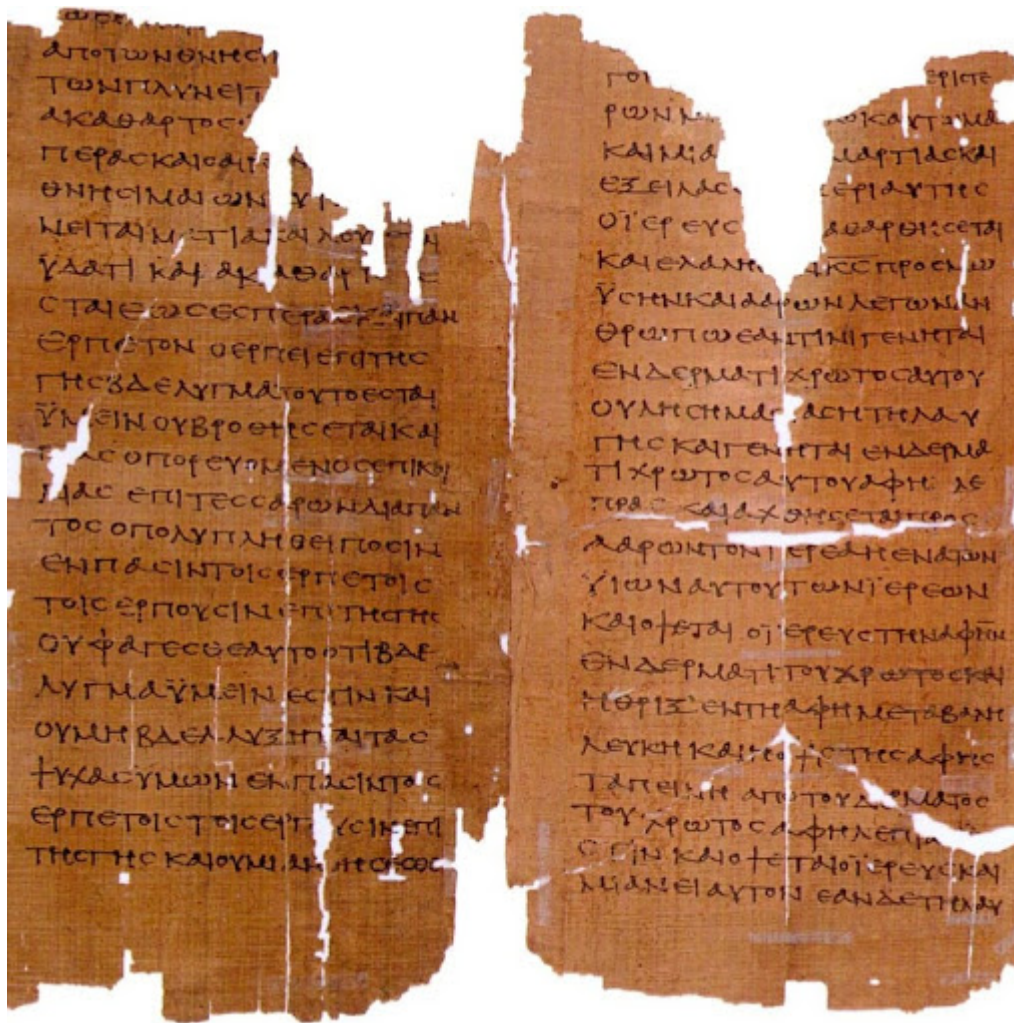 ΑΠΟΤΩΝΘΝΗCΙ
ΤΩΝΠΛΥΝΕΙΤ
ΑΚΑΘΑΡΤΟC
ΠΕΡΑCΚΑΙΟΑΙΡ
ΘΝΗCΙΜΑΙΩΝ
ΝΕΙΤΑΙΜΑΤΙΑΚΑΙΛΟΥ
ΫΔΑΤΙ ΚΑΙ ΑΚΑΘΑΡ
CΤΑΙΕΩCΕCΠΕΡΑCΚΑΙΠΑΝ
ΕΡΠΕΤΟΝ ΟΕΡΠΕΙΕΠΙΤΗC
ΓΗCΒΔΕΛΥΓΜΑΤΟΥΤΟΕCΤΑΙ
ΫΜΕΙΝ ΟΥΒΡΟΘΗCΕΤΑΙΚΑΙ
ΠΑC ΟΠΟΡΕΥΟΜΕΝΟCΕΠΙΚΟΙ
ΛΙΑC ΕΠΙΤΕCCΑΡΩΝΔΙΑΠΑΝ
ΤΟC ΟΠΟΛΥΠΛΗΘΕΙΠΟCΙΝ
ΕΝΠΑCΙΝΤΟΙCΕΡΠΕΤΟΙC
ΤΟΙCΕΡΠΟΥCΙΝΕΠΙΤΗCΓΗC
ΟΥΦΑΓΕCΘΕΑΥΤΟΟΤΙΒΔΕ
ΛΥΓΜΑΫΜΕΙΝ ΕCΤΙΝ ΚΑΙ
ΟΥΜΗ ΒΔΕΛΛΥΞΗΤΑΙΤΑC
ΨΥΧΑCΥΜΩΝ ΕΝΠΑCΙΝΤΟΙC
ΕΡΠΕΤΟΙC ΤΟΙCΕΡΠΟΥCΙΝΕΠΙ
ΤΗCΓΗC ΚΑΙΟΥΜΙΑΝΘΗCΕCΘΕ
ΡΩΝ
ΚΑΙΜΙΑ ΜΑΡΤΙΑCΚΑΙ
ΕΞΕΙΛΑC ΠΕΡΙΑΥΤΗC
ΟΪΕΡΕΥC ΚΑΘΑΡΘΗCΕΤΑΙ
ΚΑΙΕΛΑΛΗC ΚC̅ ΠΡΟCΜΩ
ΫCΗΝΚΑΙΑΑΡΩΝΛΕΓΩΝΑΝ
ΘΡΩΠΩΕΑΝΤΙΝΙΓΕΝΗΤΑΙ
ΕΝΔΕΡΜΑΤΙΧΡΩΤΟCΑΥΤΟΥ
ΟΥΛΗCΗΜΑCΙΑCΗΤΗΛΑΥ
ΓΗC ΚΑΙΓΕΝΗΤΑΙ ΕΝΔΕΡΜΑ
ΤΙΧΡΩΤΟCΑΥΤΟΥΑΦΗ ΛΕ
ΠΡΑC ΚΑΙΑΧΘΗCΕΤΑΙΠΡΟC
ΑΑΡΩΝΤΟΝΙΕΡΕΑΗΕΝΑΤΩΝ
ΫΙΩΝΑΥΤΟΥΤΩΝΪΕΡΕΩΝ
ΚΑΙΟΨΕΤΑΙ ΟΪΕΡΕΥCΤΗΝΑΦΗΝ
ΕΝΔΕΡΜΑΤΙΤΟΥΧΡΩΤΟCΚΑΙ
ΗΘΡΙΞ ΕΝΤΗΑΦΗΜΕΤΑΒΑΛΗ
ΛΕΥΚΗ ΚΑΙΗΟΨΙCΤΗCΑΦΗC
ΤΑΠΕΙΝΗ ΑΠΟΤΟΥΔΕΡΜΑΤΟC
ΤΟΥ ΧΡΩΤΟCΑΦΗΛΕΠΡΑ
CΤΙΝ ΚΑΙΟΨΕΤΑΙΟΪΕΡΕΥCΚΑΙ
ΜΙΑΝΕΙΑΥΤΟΝ ΕΑΝΔΕΤΗΛΑΥ